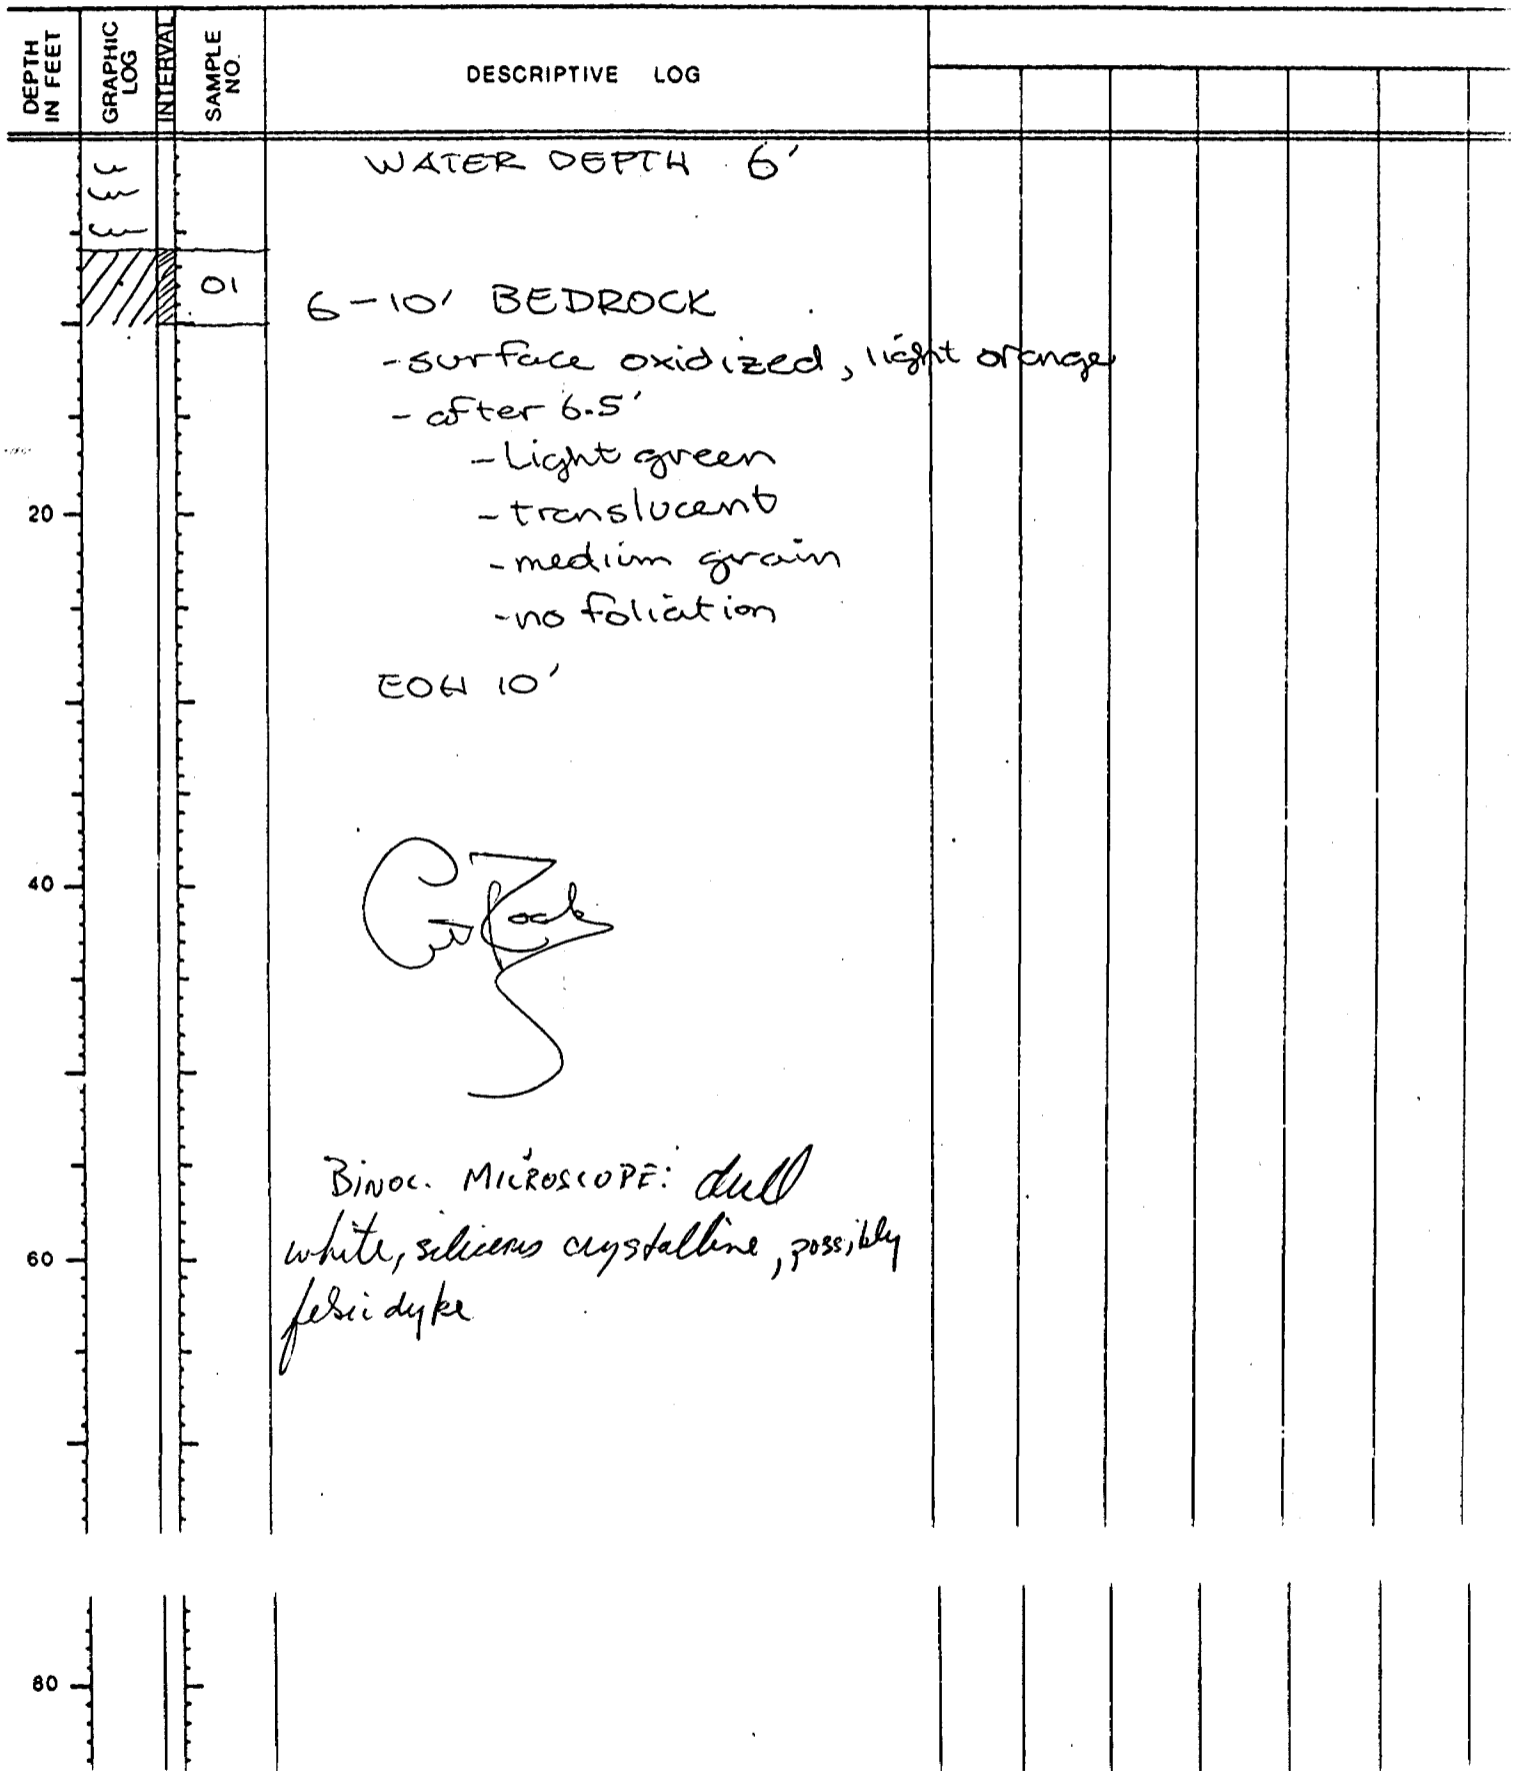 DEPTH IN FEET
GRAPHIC LOG
INTERVAL
SAMPLE NO.
DESCRIPTIVE LOG
WATER DEPTH 6'
01
6-10' BEDROCK
-surface oxidized, light orange
- after 6.5'
- Light green
- translucent
- medium grain
- no foliation
20
EOH 10'
40
BINOC. MICROSCOPE: dull
white, siliceous crystalline, possibly
60
felsic dyke
80